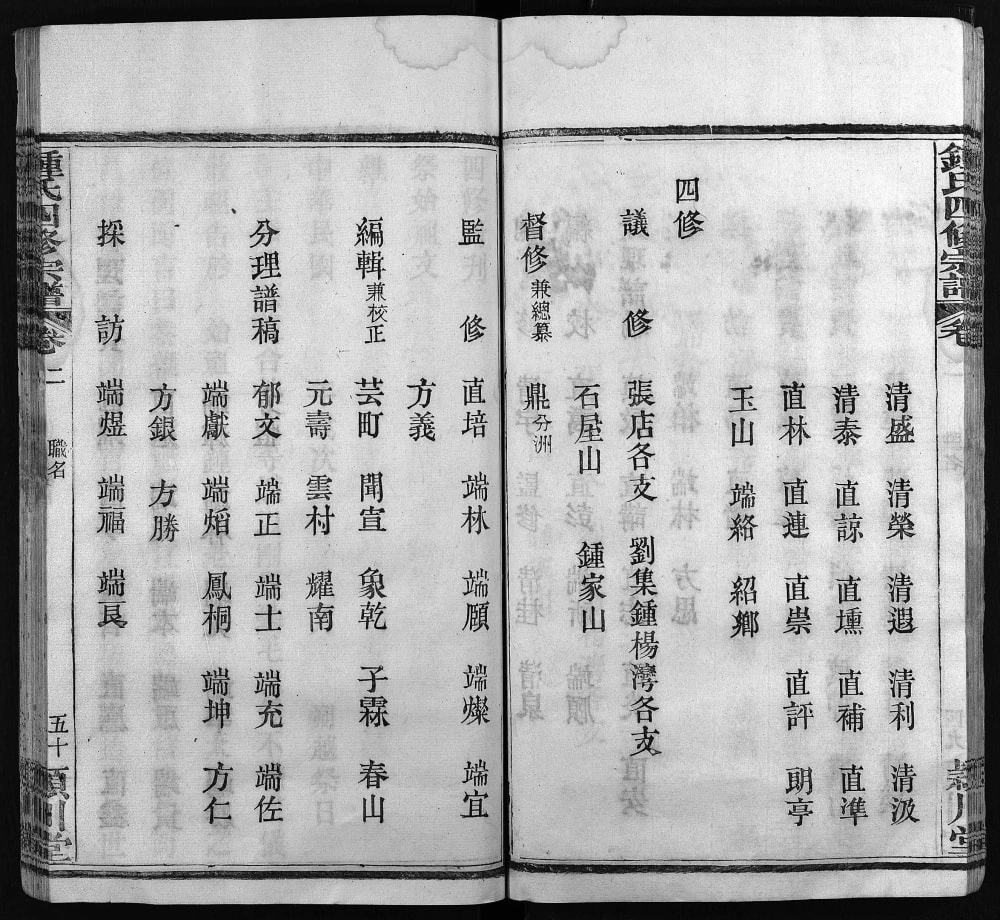 鍾氏四修宗譜
清盛 清榮 清遐 清利 清汲
清泰 直諒 直壎 直補 直準
直林 直連 直崇 直評 朗亭
玉山 端絡 紹鄉
四修
議修 張店各支 劉集鍾楊灣各支
石屋山 鍾家山
督修兼總纂 鼎分洲
監修 直培 端林 端願 端燦 端宜
方義
編輯兼校正 芸町 聞宣 象乾 子霖 春山
元壽 雲村 耀南
分理譜稿 郁文 端正 端士 端充 端佐
端獻 端熖 鳳桐 端坤 方仁
方銀 方勝
採訪 端煜 端福 端長
鍾氏四修宗譜 卷二 職名 五十 潁川堂